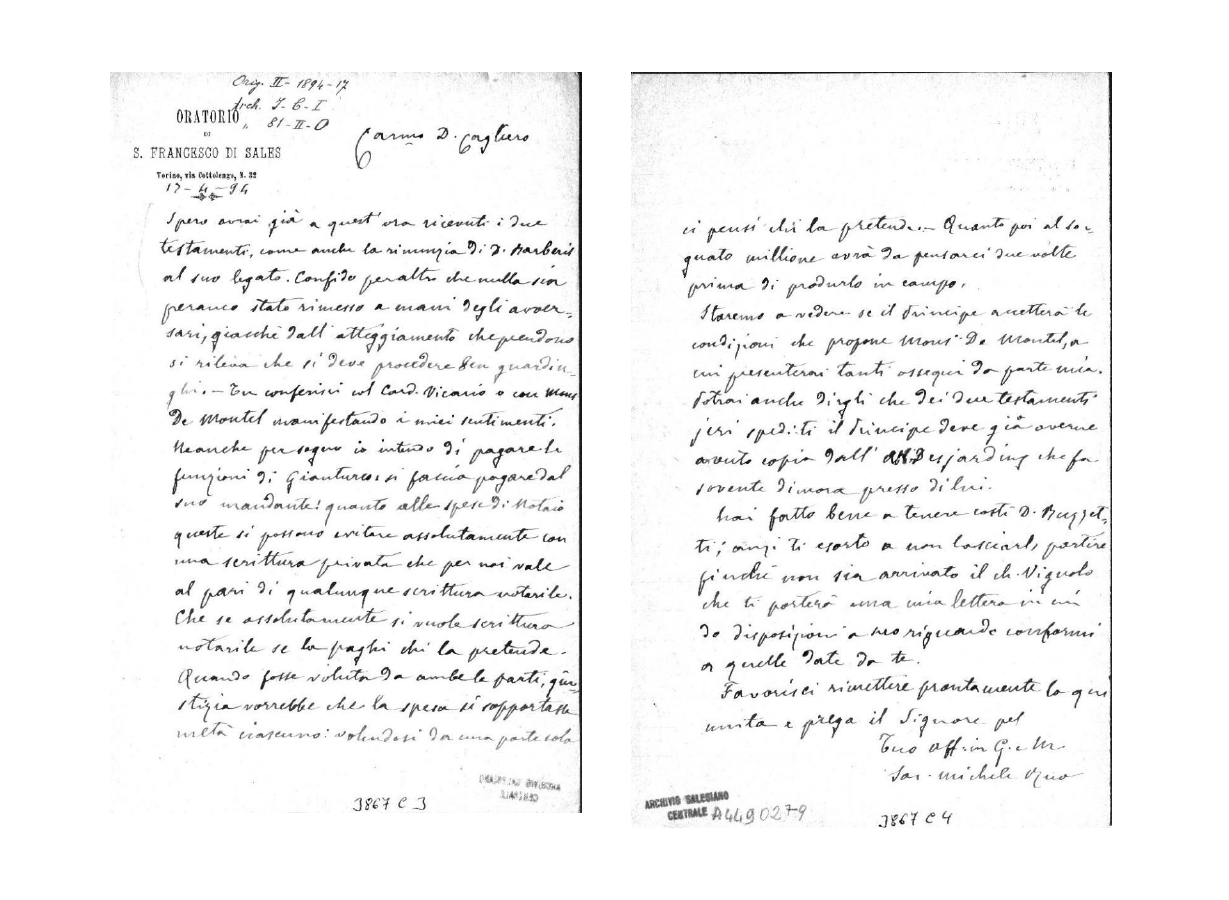 Orig. II - 1894-17
Arch. I-C-I
" 81-II-O
ORATORIO
DI
S. FRANCESCO DI SALES
Torino, via Cottolengo, N. 32
17-4-94
Carmo D. Cagliero
Spero avrai già a quest'ora ricevuti i due
testamenti, come anche la rinunzia di D. Barberis
al suo legato. Confido peraltro che nulla sia
peranco stato rimesso a mani degli avver-
sari, giacchè dall'atteggiamento che prendono
si rileva che si deve procedere ben guardin-
ghi. – Tu conferisci col Card. Vicario o con Mons
De Montel manifestando i miei sentimenti.
Neanche per sogno io intendo di pagare le
funzioni di Gianturco: si faccia pagare dal
suo mandante: quanto alle spese di Notaio
queste si possono evitare assolutamente con
una scrittura privata che per noi vale
al pari di qualunque scrittura notarile.
Che se assolutamente si vuole scrittura
notarile se la paghi chi la pretende.
Quando fosse voluta da ambe le parti, giu-
stizia vorrebbe che la spesa si sopportasse
metà ciascuno: volendosi da una parte sola
3867 C 3
ci pensi chi la pretende. – Quanto poi al so-
gnato millione avrà da pensarci due volte
prima di produrlo in campo.
Staremo a vedere se il Principe accetterà le
condizioni che propone Mons. De Montel, a
cui presenterai tanti ossequi da parte mia.
Potrai anche dirgli che dei due testamenti
jeri spediti il Principe deve già averne
avuto copia dall' Desjardins che fa
sovente dimora presso di lui.
Hai fatto bene a tenere costì D. Buzzet-
ti; anzi ti esorto a non lasciarlo partire
finchè non sia arrivato il ch. Vignolo
che ti porterà una mia lettera in cui
do disposizioni a suo riguardo conformi
a quelle date da te.
Favorisci rimettere prontamente la qui
unita e prega il Signore pel
Tuo aff. in G. e M.
Sac. Michele Rua
ARCHIVIO SALESIANO
CENTRALE
A4490279
3867 C 4